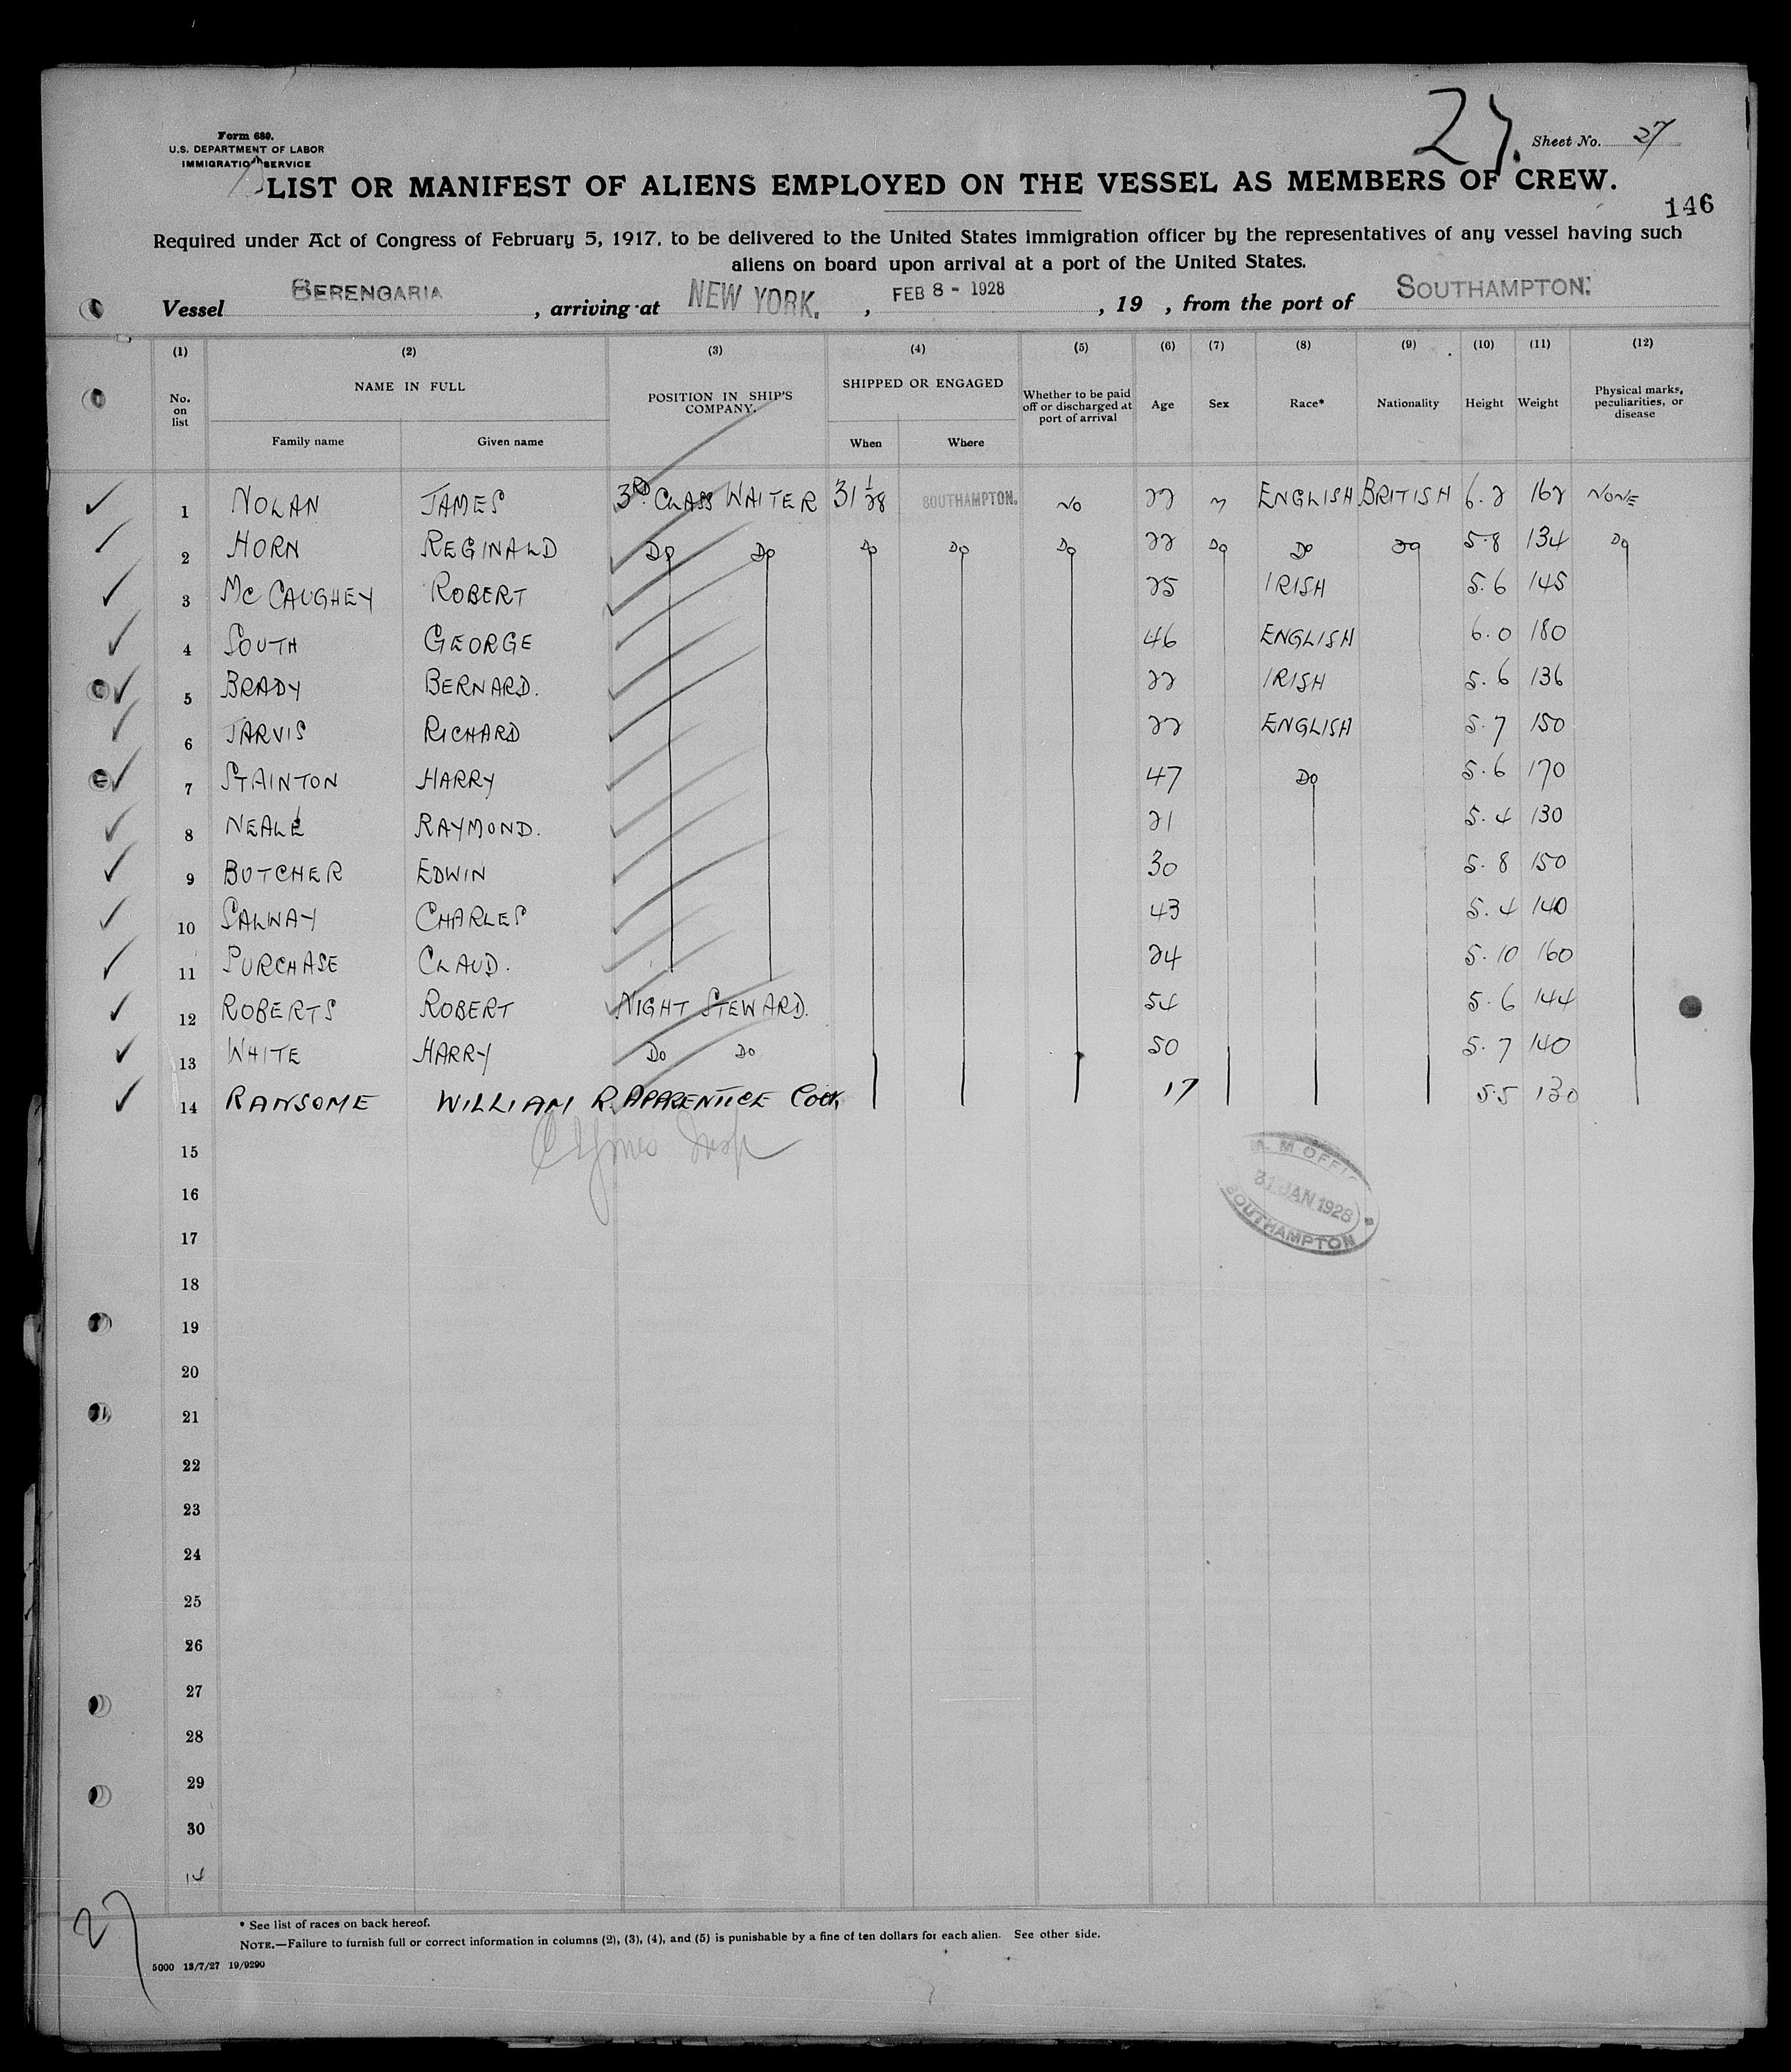 27.
Sheet No. 27
Form 689.
U.S. DEPARTMENT OF LABOR
IMMIGRATION SERVICE
LIST OR MANIFEST OF ALIENS EMPLOYED ON THE VESSEL AS MEMBERS OF CREW.
146
Required under Act of Congress of February 5, 1917, to be delivered to the United States immigration officer by the representatives of any vessel having such
aliens on board upon arrival at a port of the United States.
Vessel BERENGARIA, arriving at NEW YORK., FEB 8 - 1928, 19 , from the port of SOUTHAMPTON.
(1) (2) (3) (4) (5) (6) (7) (8) (9) (10) (11) (12)
No. on list NAME IN FULL Family name Given name POSITION IN SHIP'S COMPANY. SHIPPED OR ENGAGED When Where Whether to be paid off or discharged at port of arrival Age Sex Race* Nationality Height Weight Physical marks, peculiarities, or disease
1 NOLAN JAMES 3RD CLASS WAITER 31 1/28 SOUTHAMPTON. No 22 M ENGLISH BRITISH 6.2 162 NONE
2 HORN REGINALD Do Do Do Do Do 22 Do Do Do 5.8 134 Do
3 McCAUGHEY ROBERT 25 IRISH 5.6 145
4 SOUTH GEORGE 46 ENGLISH 6.0 180
5 BRADY BERNARD. 22 IRISH 5.6 136
6 JARVIS RICHARD 22 ENGLISH 5.7 150
7 STAINTON HARRY 47 Do 5.6 170
8 NEALE RAYMOND. 21 5.4 130
9 BUTCHER EDWIN 30 5.8 150
10 SALWAY CHARLES 43 5.4 140
11 PURCHASE CLAUD. 24 5.10 160
12 ROBERTS ROBERT NIGHT STEWARD. 54 5.6 144
13 WHITE HARRY Do Do 50 5.7 140
14 RANSOME WILLIAM R. APPRENTICE COOK 17 5.5 130
15
16
17
18
19
20
21
22
23
24
25
26
27
28
29
30
14
31 JAN 1928
SOUTHAMPTON
27
* See list of races on back hereof.
NOTE.—Failure to furnish full or correct information in columns (2), (3), (4), and (5) is punishable by a fine of ten dollars for each alien. See other side.
5000 13/7/27 19/9290